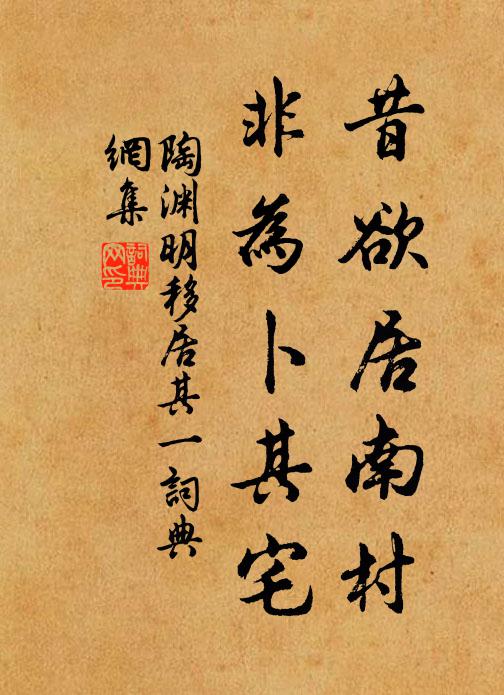 昔欲居南村
非為卜其宅
陶渊明移居其一詞典
網集
詞典
网印